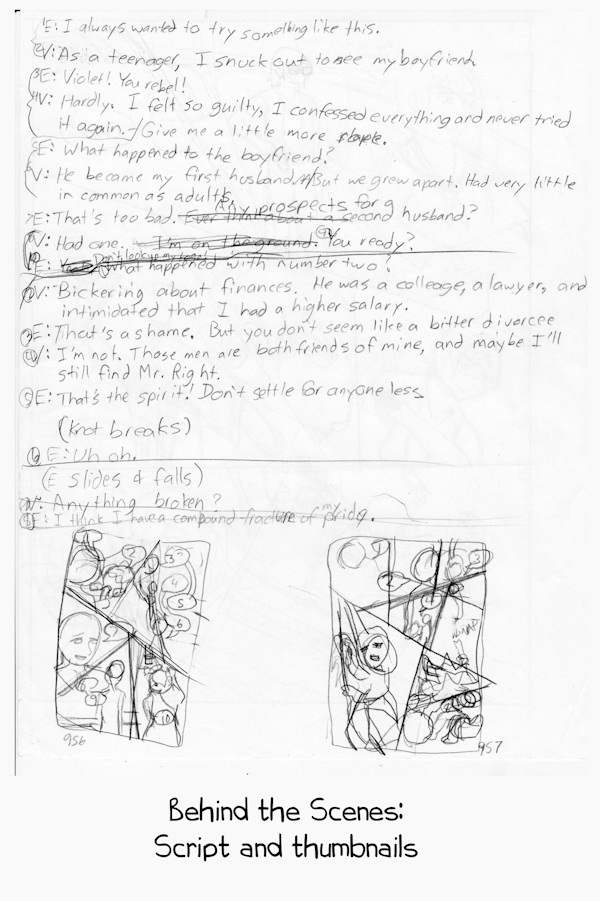 1E: I always wanted to try something like this.
2V: As a teenager, I snuck out to see my boyfriend.
3E: Violet! You rebel!
4V: Hardly. I felt so guilty, I confessed everything and never tried
it again. Give me a little more slope.
5E: What happened to the boyfriend?
V: He became my first husband. But we grew apart. Had very little
in common as adults.
7E: That's too bad. Ever think about Any prospects for a second husband?
V: Had one. I'm on the ground. You ready?
E: Don't look up my legs! What happened with number two?
V: Bickering about finances. He was a colleage, a lawyer, and
intimidated that I had a higher salary.
E: That's a shame. But you don't seem like a bitter divorcee
V: I'm not. Those men are both friends of mine, and maybe I'll
still find Mr. Right.
E: That's the spirit! Don't settle for anyone less.
(Knot breaks)
E: Uh oh.
(E slides & falls)
V: Anything broken?
E: I think I have a compound fracture of my pride.
2
3
4
5
6
3
956
957
Behind the Scenes:
Script and thumbnails